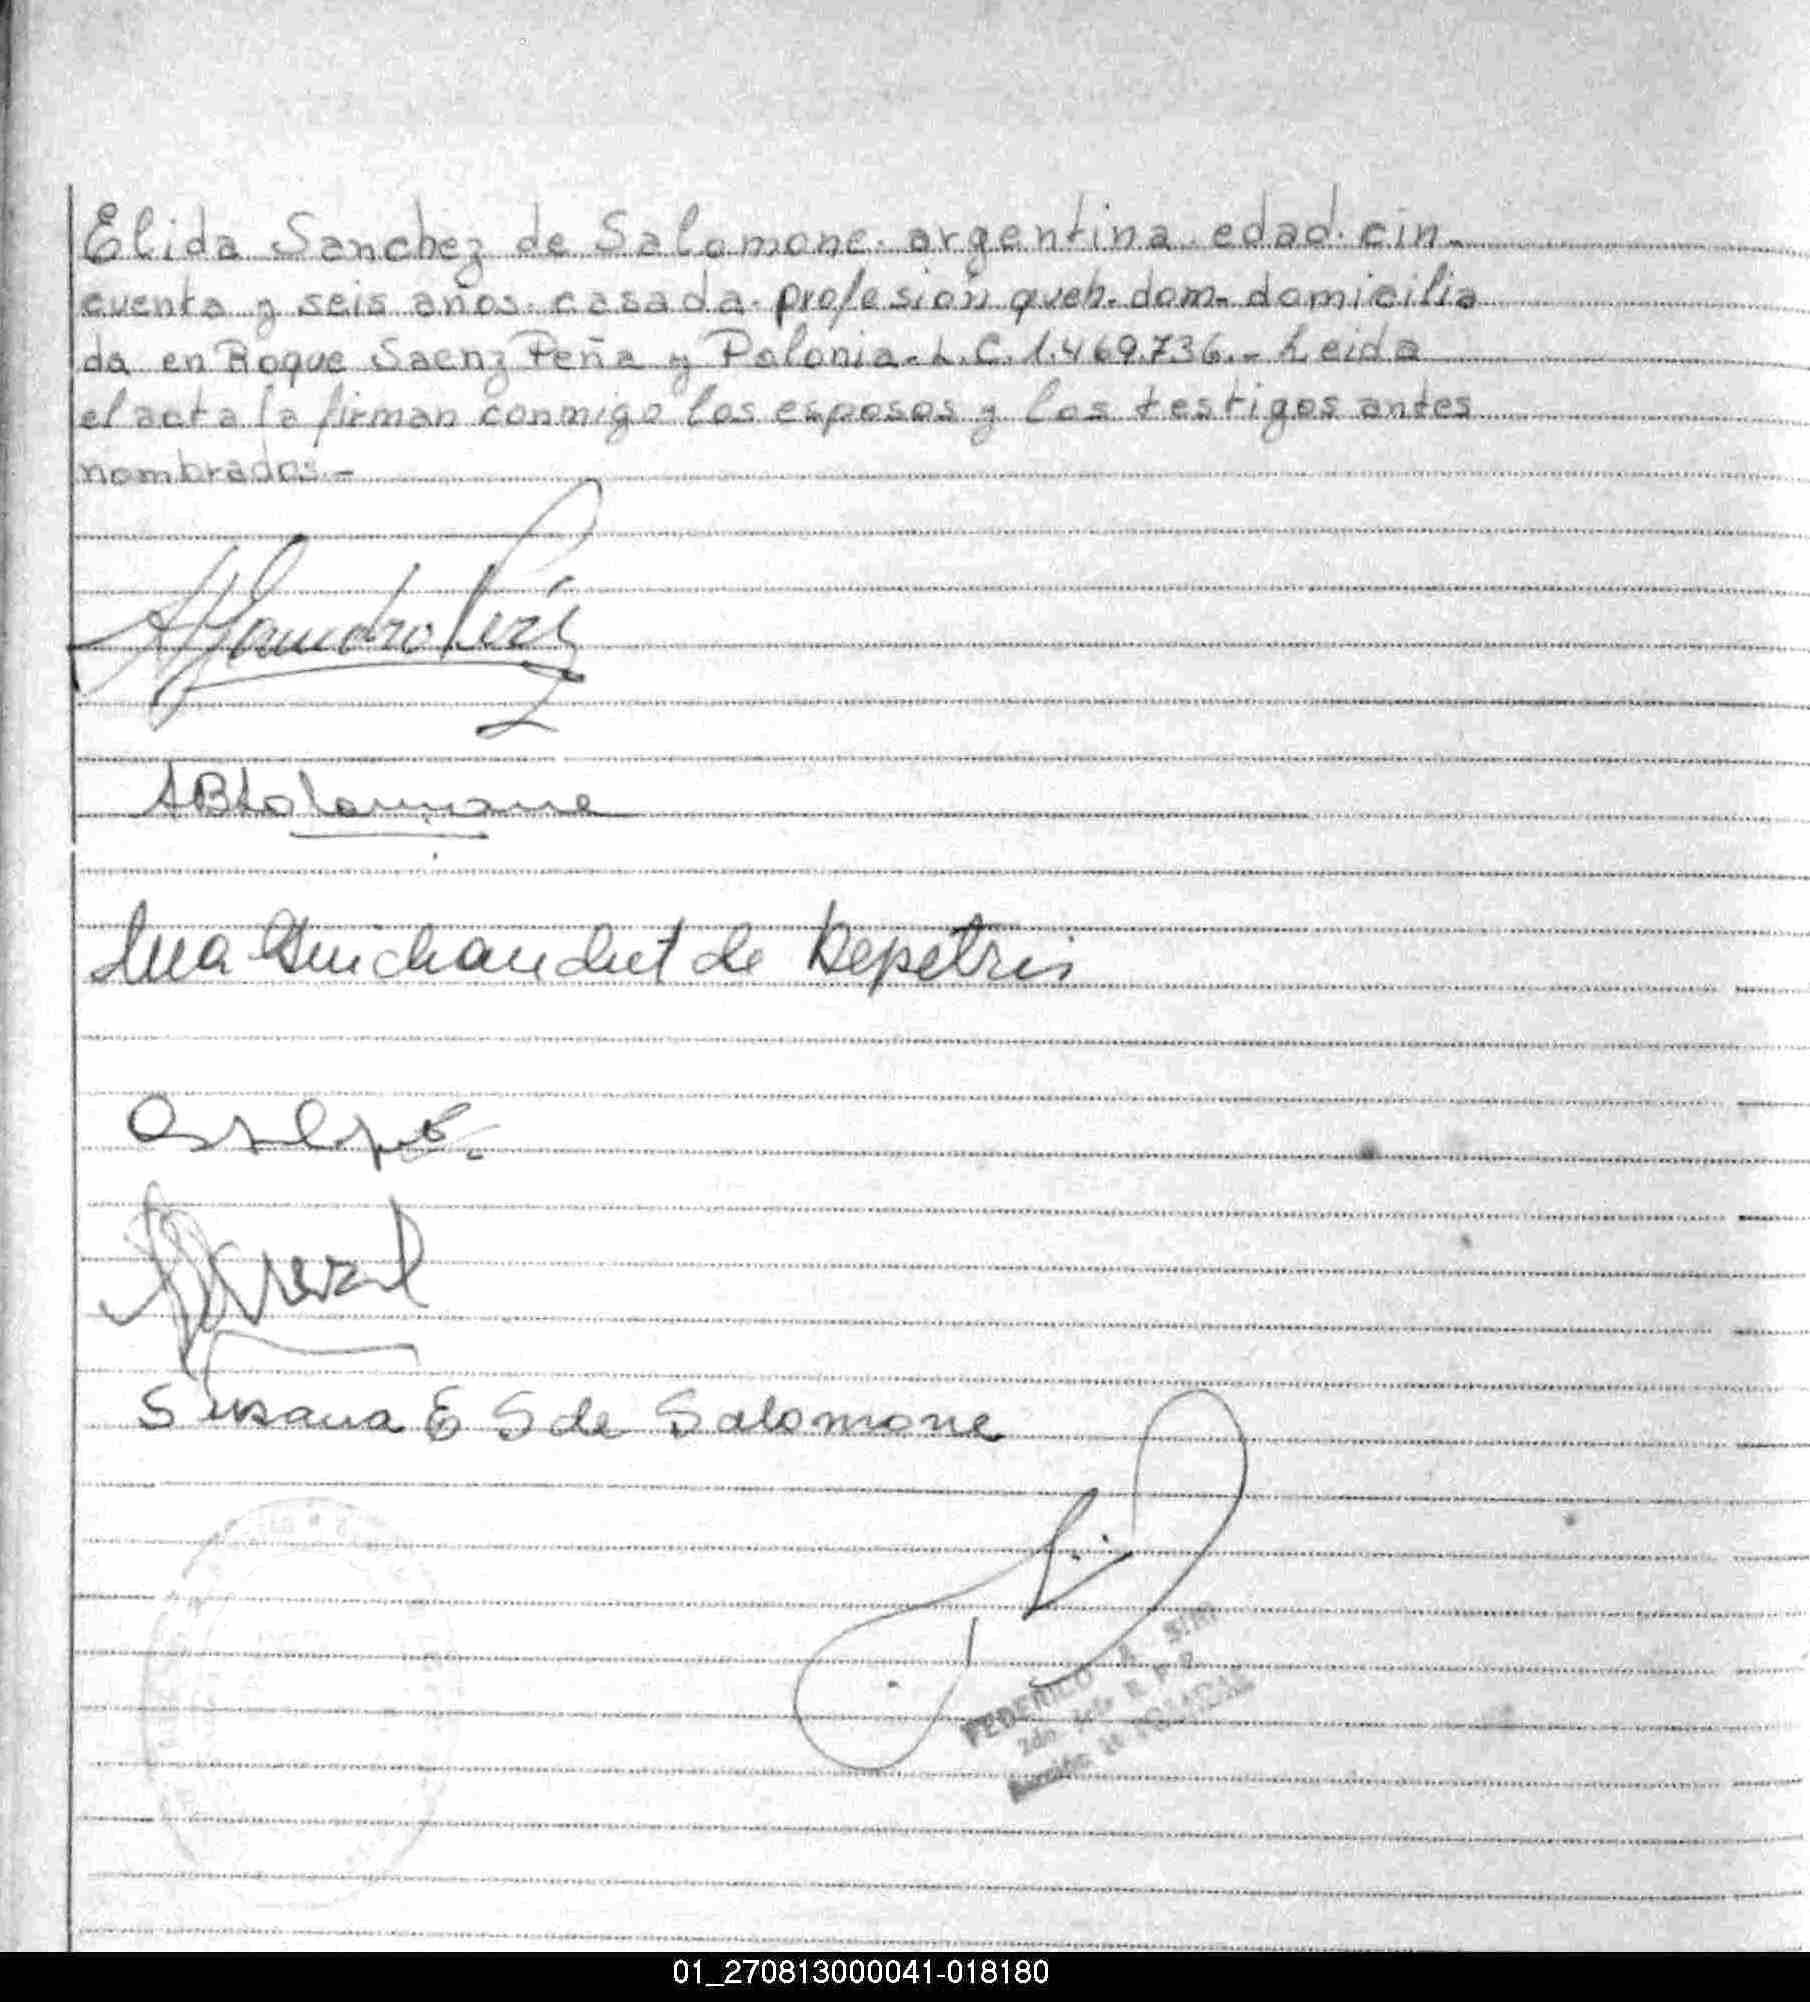 Elida Sanchez de Salomone. argentina. edad. cin-
cuenta y seis años. casada. profesión queh. dom. domicilia
da en Roque Saenz Peña y Polonia. L.C. 1.469.736.- Leida
el acta la firman conmigo los esposos y los testigos antes
nombrados.-
Alejandro
ABSalomone
Guichandut de Depetris
Susana E S de Salomone
FEDERICO A.
2do Jefe R P
01_270813000041-018180